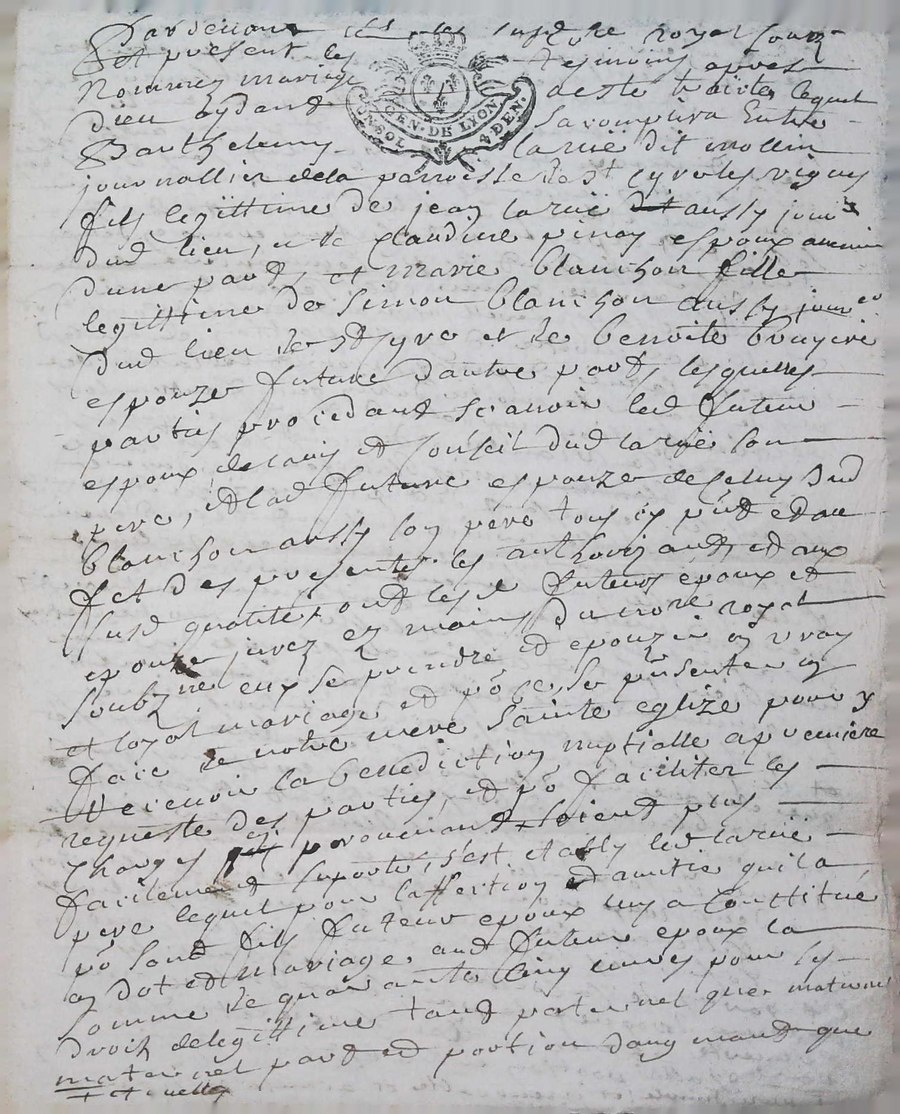 Pardevant le no.re royal soubz.
et present les tesmoins apres
Nommez mariage a este traitte lequel
dieu aydant sacomplira Entre
GEN. DE LYON
UN SOL 4 DEN.
Barthelemy larüe dit mollin
journallier de la parroisse de st cyr les vignes
fils legittime de jean larüe dit aussy jour.
dud lieu, et de Claudine pinay espoux avenir
dune part, et marie blanchon fille
legittime de Simon blanchon aussy jour.er
dud lieu de st cyre et de benoite bruyere
espouze future dautre part, lesquelles
parties procedant scavoir led futur
espoux de lavis et conseil dud larüe son
pere, et lad future espouze de celuy dud
blanchon aussy son pere tous cy pñt et au
fet des presentes les authorizant, et aux
susd qualites, ont lesd futurs epoux et
epouze jurez ez mains du no.re royal
soubz.ne eux se prendre et epouzer en vray
et loyal mariage, et po ce, se pñsenter en
face de notre mere sainte eglize pour y
Recevoir la benediction nuptialle a premiere
requeste des parties, et po faciliter les
Charges provenant, soient plus
facilement suporté, s'est etably led larüe
pere lequel pour laffection et amitie quil a
po sond fils futeur epoux luy a Constitué
en dot et mariage aud futur epoux la
somme de quarante cinq livres pour les
droit de legittime tant paternel que maternel
maternel part et portion daugmant que